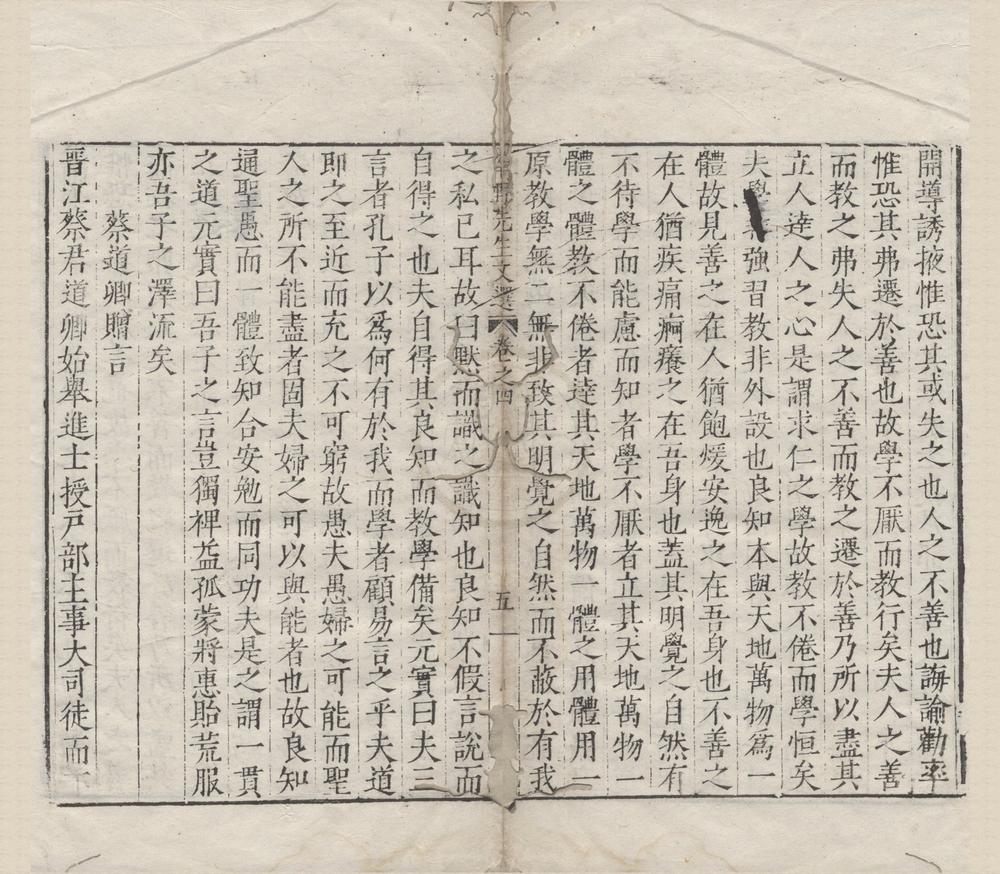 開導誘掖惟恐其或失之也人之不善也誨諭勸率
惟恐其弗遷於善也故學不厭而教行矣夫人之善
而教之弗失人之不善而教之遷於善乃所以盡其
立人達人之心是謂求仁之學故教不倦而學恒矣
夫學 強習教非外設也良知本與天地萬物爲一
體故見善之在人猶飽煖安逸之在吾身也不善之
在人猶疾痛痾癢之在吾身也蓋其明覺之自然有
不待學而能慮而知者學不厭者立其天地萬物一
體之體教不倦者達其天地萬物一體之用體用一
原教學無二無非致其明覺之自然而不蔽於有我
先生文選 卷之四 五
之私已耳故曰默而識之識知也良知不假言說而
自得之也夫自得其良知而教學備矣元實曰夫三
言者孔子以爲何有於我而學者顧易言之乎夫道
即之至近而充之不可窮故愚夫愚婦之可能而聖
人之所不能盡者固夫婦之可以與能者也故良知
通聖愚而一體致知合安勉而同功夫是之謂一貫
之道元實曰吾子之言豈獨裨益孤蒙將惠貽荒服
亦吾子之澤流矣
蔡道卿贈言
晋江蔡君道卿始舉進士授戸部主事大司徒而下